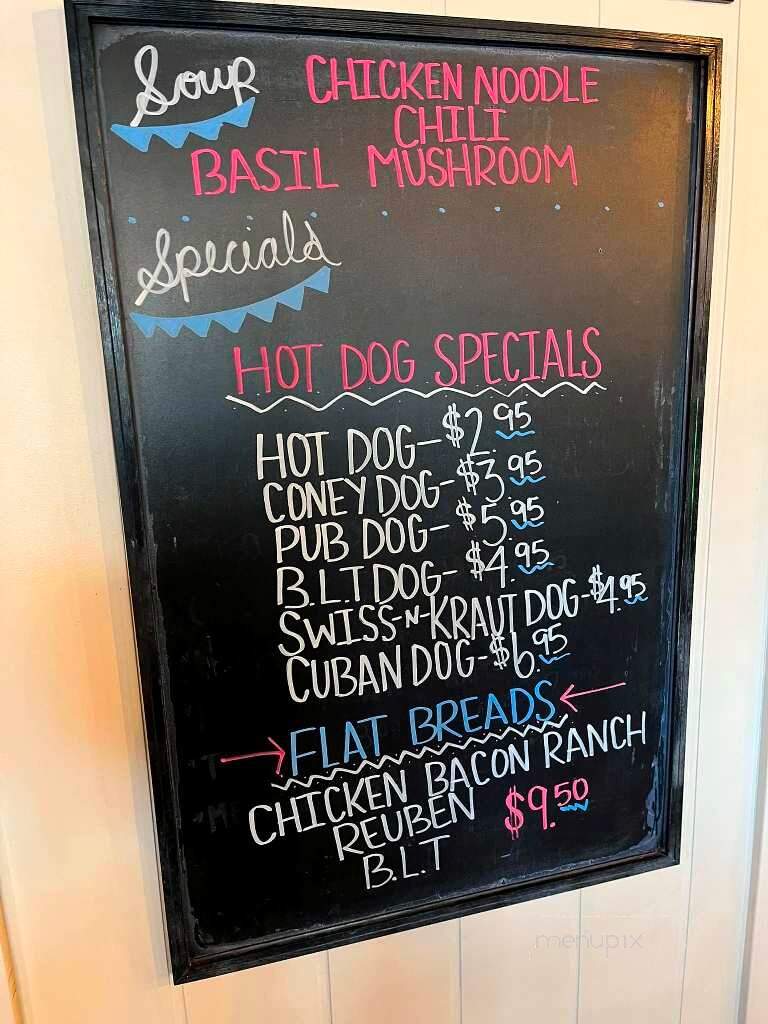 Soup CHICKEN NOODLE
CHILI
BASIL MUSHROOM
Specials
HOT DOG SPECIALS
HOT DOG-$2.95
CONEY DOG-$3.95
PUB DOG-$5.95
B.L.T DOG-$4.95
SWISS-N-KRAUT DOG-$4.95
CUBAN DOG-$6.95
FLAT BREADS
CHICKEN BACON RANCH
REUBEN $9.50
B.L.T
menupix